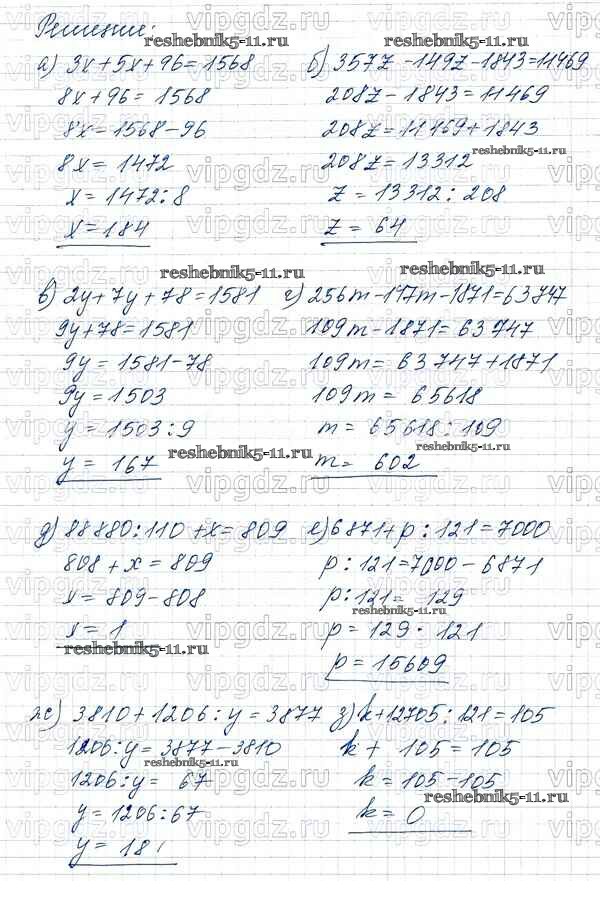 Решение:
а) 3x + 5x + 96 = 1568
8x + 96 = 1568
8x = 1568 - 96
8x = 1472
x = 1472 : 8
x = 184
б) 357z - 149z - 1843 = 11469
208z - 1843 = 11469
208z = 11469 + 1843
208z = 13312
z = 13312 : 208
z = 64
в) 2y + 7y + 78 = 1581
9y + 78 = 1581
9y = 1581 - 78
9y = 1503
y = 1503 : 9
y = 167
г) 256m - 147m - 1871 = 63747
109m - 1871 = 63747
109m = 63747 + 1871
109m = 65618
m = 65618 : 109
m = 602
д) 88880 : 110 + x = 809
808 + x = 809
x = 809 - 808
x = 1
е) 6871 + p : 121 = 7000
p : 121 = 7000 - 6871
p : 121 = 129
p = 129 · 121
p = 15609
ж) 3810 + 1206 : y = 3877
1206 : y = 3877 - 3810
1206 : y = 67
y = 1206 : 67
y = 18
з) k + 12705 : 121 = 105
k + 105 = 105
k = 105 - 105
k = 0
reshebnik5-11.ru
vipgdz.ru